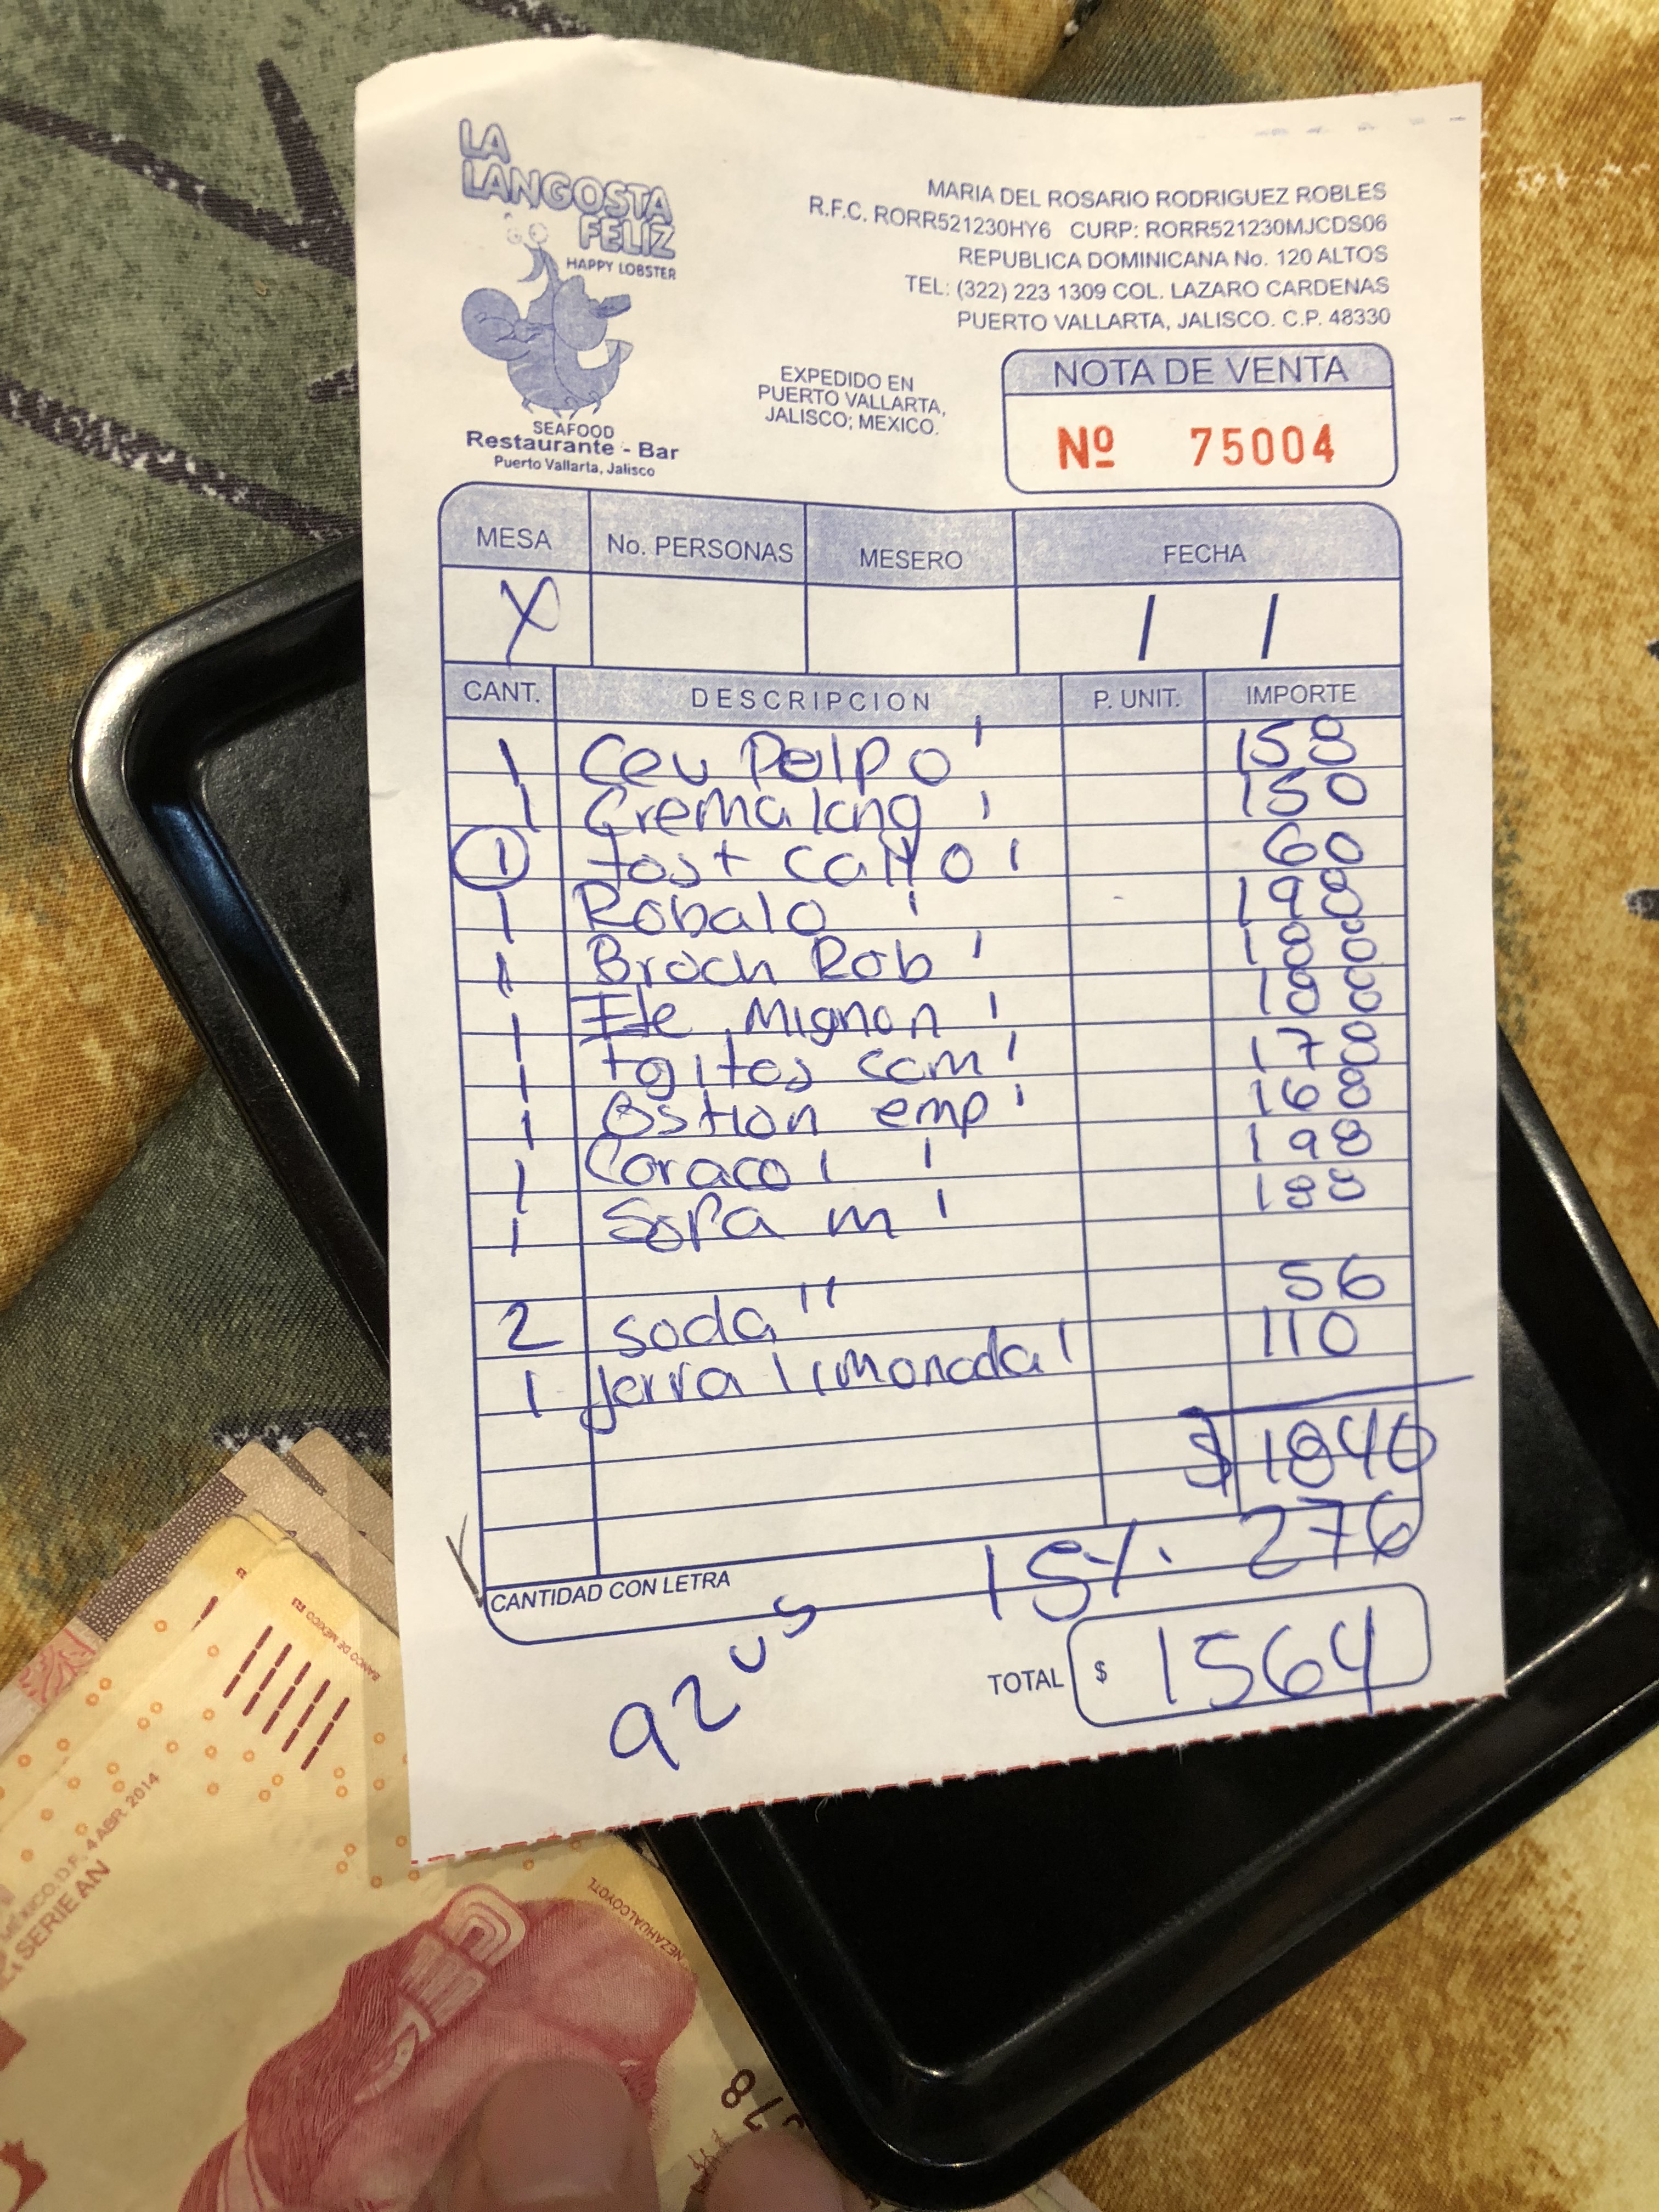 LA
LANGOSTA
FELIZ
HAPPY LOBSTER
SEAFOOD
Restaurante - Bar
Puerto Vallarta, Jalisco
MARIA DEL ROSARIO RODRIGUEZ ROBLES
R.F.C. RORR521230HY6 CURP: RORR521230MJCDS06
REPUBLICA DOMINICANA No. 120 ALTOS
TEL: (322) 223 1309 COL. LAZARO CARDENAS
PUERTO VALLARTA, JALISCO. C.P. 48330
EXPEDIDO EN
PUERTO VALLARTA,
JALISCO; MEXICO.
NOTA DE VENTA
Nº 75004
MESA No. PERSONAS MESERO FECHA
X / /
CANT. DESCRIPCION P. UNIT. IMPORTE
1 Cev Polpo 158
1 Crema lang 150
1 tost Callo 60
1 Robalo 198
1 Broch Rob 188
1 Mignon 188
1 178
1 Ostion emp 168
1 Caracol 198
1 Sopa m 188
2 soda 56
1 jarra limonada 110
$ 1840
15%. 276
CANTIDAD CON LETRA
92 US
TOTAL $ 1564
BANCO DE MÉXICO
MÉXICO, D.F. 4 ABR. 2014
SERIE AN
NEZAHUALCOYOTL